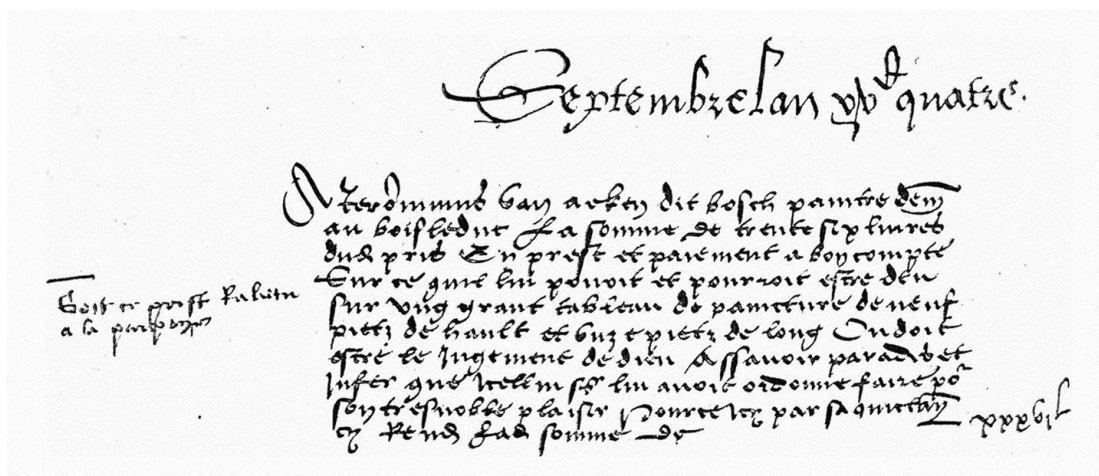 Septembre lan xv^c quatre.
A Jeronimus Van aeken dit bosch paintre dem^t
au boisleduc La somme de trente six livres
dud pris En prest et paiement a bon compte
Sur ce quil lui povoit et pourroit estre deu
sur ung grant tableau de paincture de neuf
pietz de hault et unze pietz de long Ou doit
estre le Jugement de dieu Assavoir paradis et
Infer que Icellui s^r lui avoit ordonne faire po^r
son tresnoble plaisir Pour ce Icy par sa quictan
cy Rendue Lad somme de
xxxvi L
Soit ce prest
a la